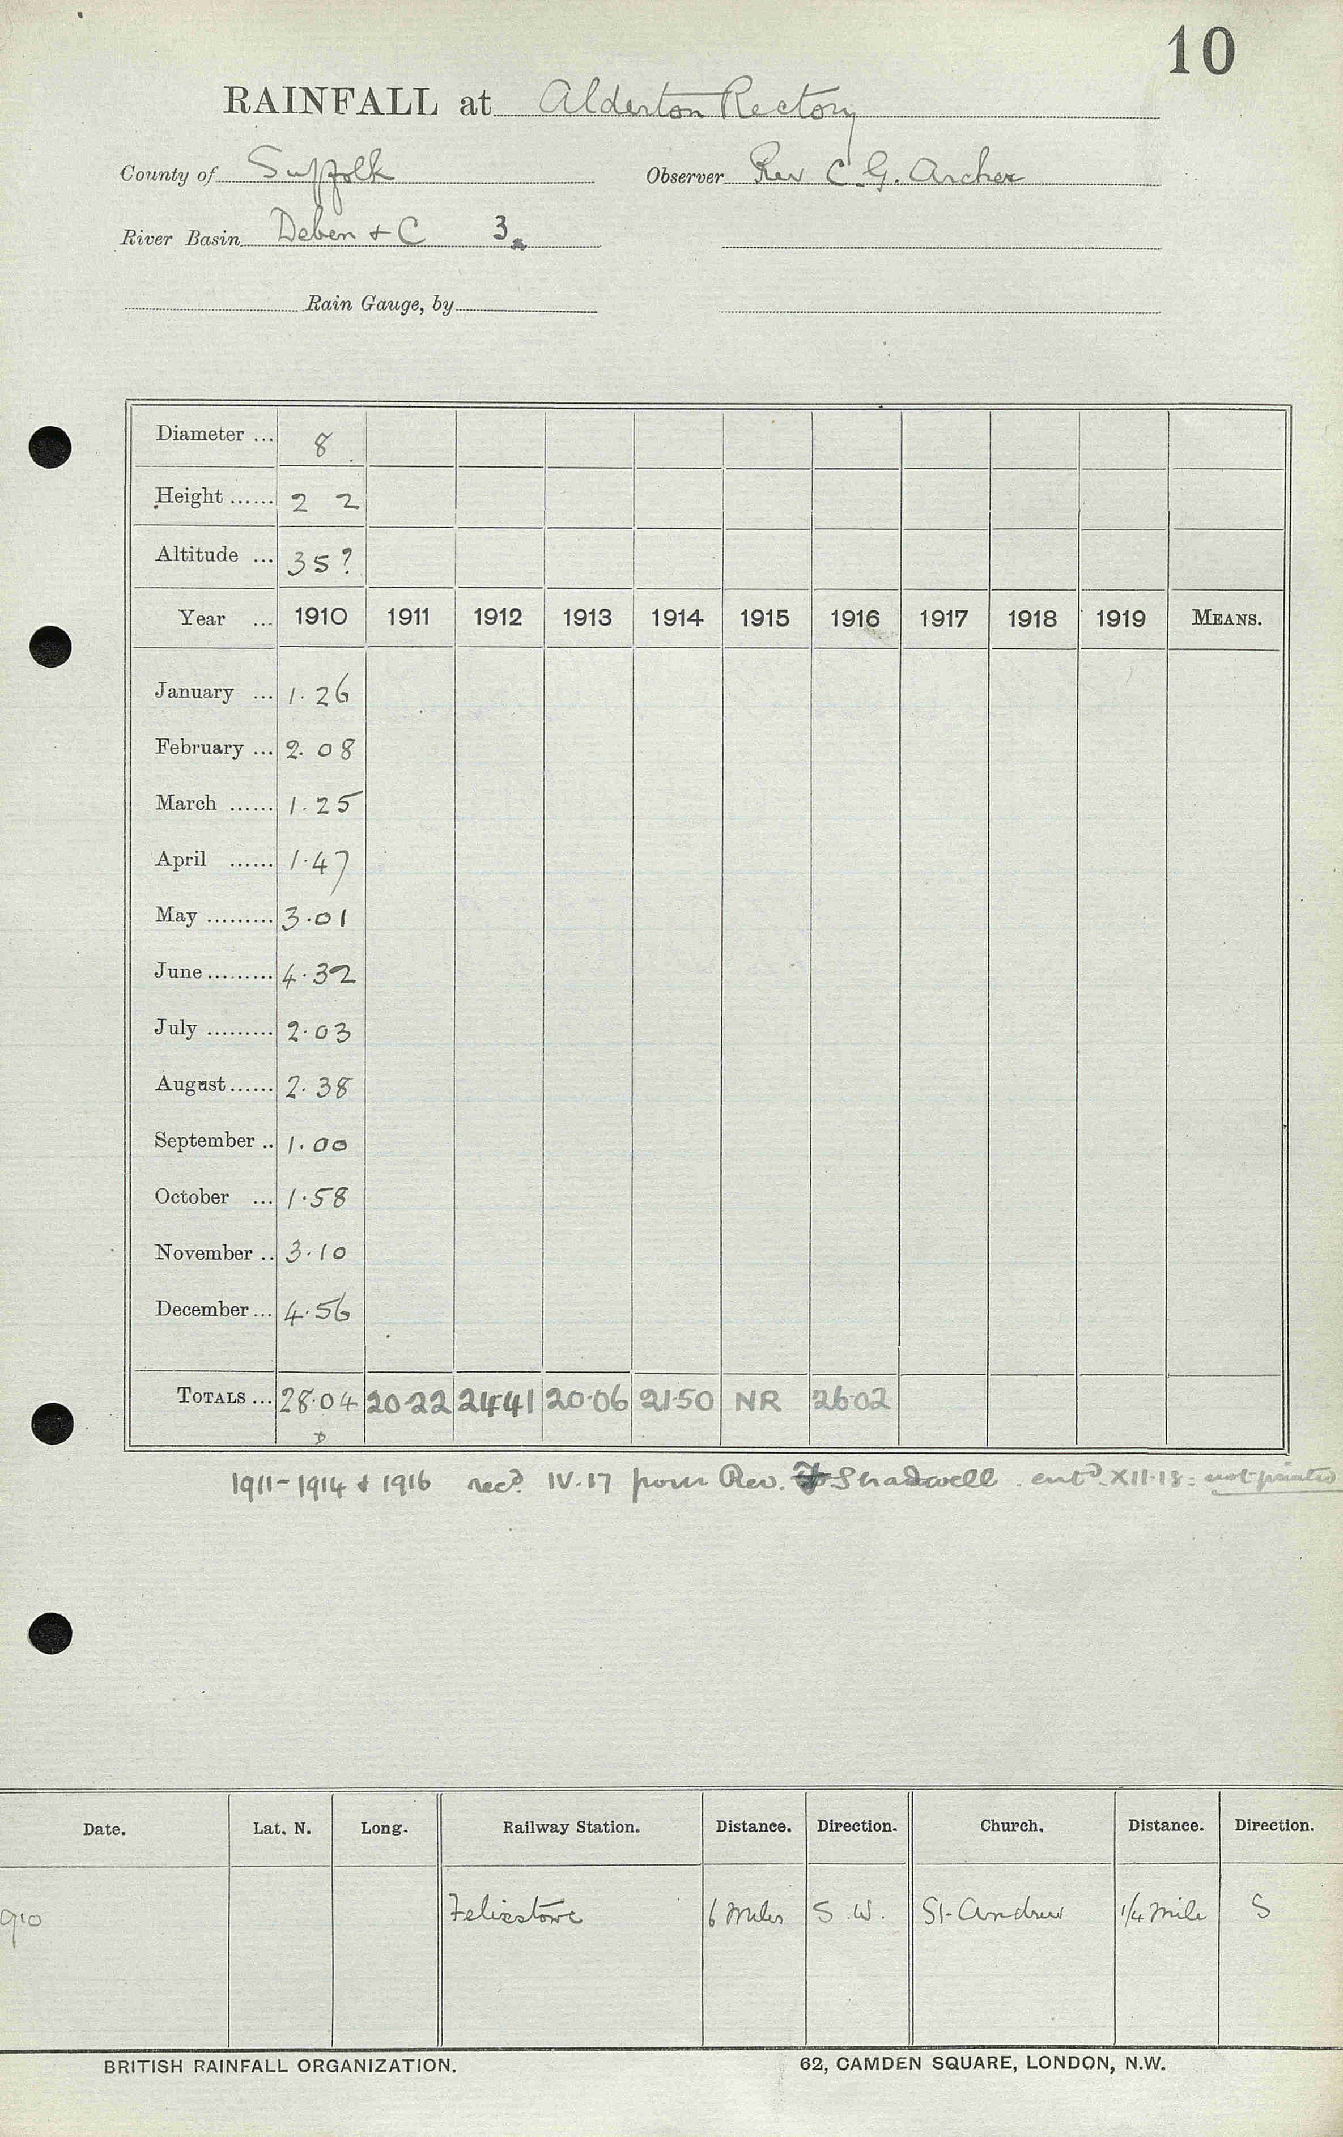 10
RAINFALL at Alderton Rectory
County of Suffolk Observer Rev C. G. Archer
River Basin Deben + C 3
Rain Gauge, by
Diameter ... 8
Height ...... 2 2
Altitude ... 35?
Year ... 1910 1911 1912 1913 1914 1915 1916 1917 1918 1919 MEANS.
January ... 1.26
February ... 2.08
March ...... 1.25
April ...... 1.47
May ......... 3.01
June ......... 4.32
July ......... 2.03
August ...... 2.38
September .. 1.00
October ... 1.58
November .. 3.10
December ... 4.56
TOTALS ... 28.04 20.22 24.41 20.06 21.50 NR 26.02
1911-1914 & 1916 recd. IV.17 from Rev. Shadwell. entd. XII.18: not printed
Date. Lat. N. Long. Railway Station. Distance. Direction. Church. Distance. Direction.
910 Felixstowe 6 miles S.W. St. Andrew 1/4 mile S
BRITISH RAINFALL ORGANIZATION. 62, CAMDEN SQUARE, LONDON, N.W.